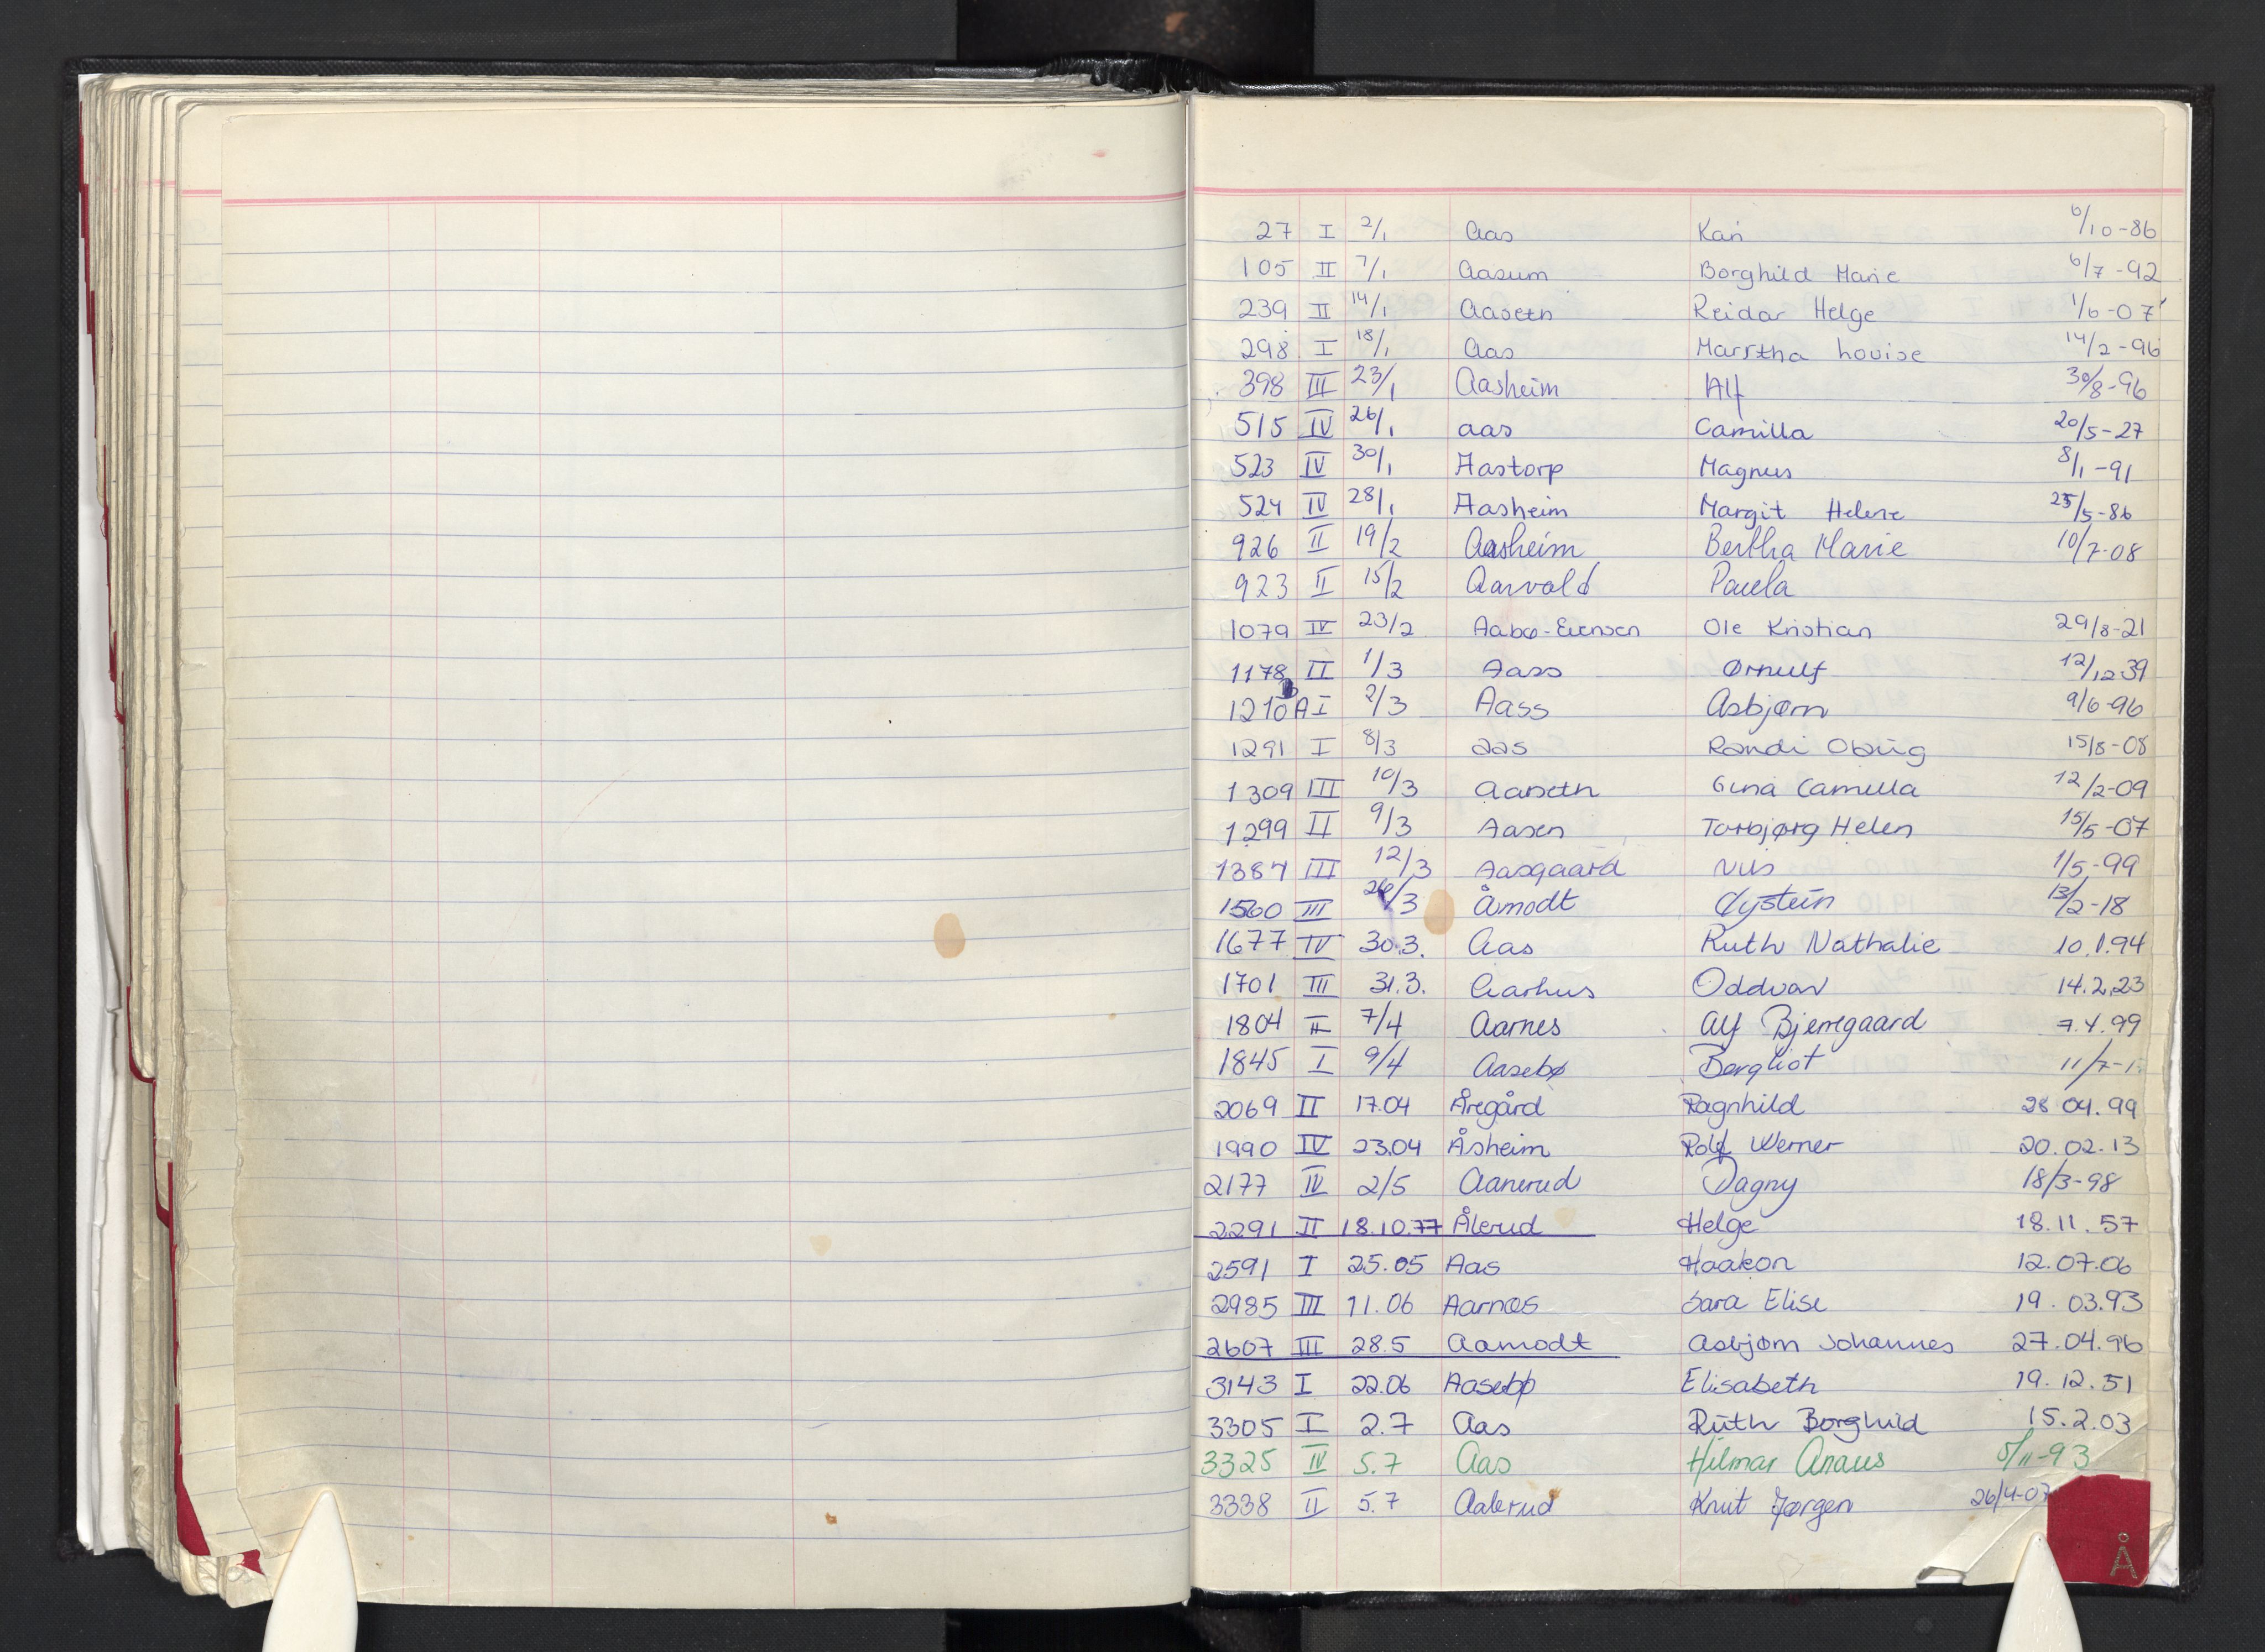 27 I 2/1 Aas Kari 6/10-86
105 II 7/1 Aasum Borghild Marie 6/7-92
239 II 14/1 Aaseth Reidar Helge 1/6-07
298 I 18/1 Aas Marstha Louise 14/2-96
398 III 23/1 Aasheim Alf 30/8-96
515 IV 26/1 aas Camilla 20/5-27
523 IV 30/1 Aastorp Magnus 8/1-91
524 IV 28/1 Aasheim Margit Helene 25/5-86
926 II 19/2 Aasheim Bertha Marie 10/7-08
923 II 15/2 Aarvold Paula
1079 IV 23/2 Aabø-Evensen Ole Kristian 29/8-21
1178 II 1/3 Aass Ørnulf 12/12 39
1210 A I 2/3 Aass Asbjørn 9/6-96
1291 I 8/3 aas Randi 15/8-08
1309 III 10/3 Aaseth Gina Camilla 12/2-09
1299 II 9/3 Aasen Torbjørg Helen 15/5-07
1387 III 12/3 Aasgaard Nils 1/5-99
1560 III 26/3 Åmodt Øystein 13/2-18
1677 IV 30.3. Aas Ruth Nathalie 10.1.94
1701 III 31.3. Aarhus Oddvar 14.2.23
1804 II 7/4 Aarnes Alf Bjerregaard 7.4.99
1845 I 9/4 Aasebø Bergliot 11/7-1
2069 II 17.04 Åregård Ragnhild 28 04.99
1990 IV 23.04 Åsheim Rolf Werner 20.02.13
2177 IV 2/5 Aanerud Dagny 18/3-98
2291 II 18.10.77 Ålerud Helge 18.11.57
2591 I 25.05 Aas Haakon 12.07.06
2985 III 11.06 Aarnæs Sara Elise 19.03.93
2607 III 28.5 Aamodt Asbjørn Johannes 27.04.96
3143 I 22.06 Aasebø Elisabeth 19.12.51
3305 I 2.7 Aas Ruth Borghild 15.2.03
3325 IV 5.7 Aas Hilmar 5/11-93
3338 II 5.7 Aalerud Knut Jørgen 26/4-07
Å